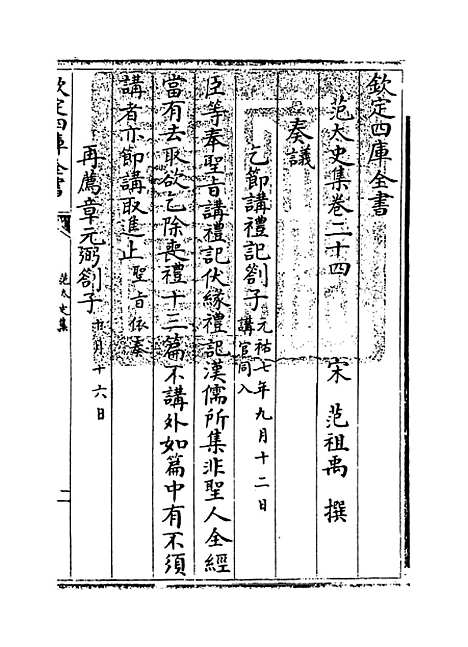 欽定四庫全書
范太史集卷二十四
宋 范祖禹 撰
奏議
乞節講禮記劄子元祐七年九月十二日
講官同入
臣等奉聖旨講禮記伏緣禮記漢儒所集非聖人全經
當有去取欲乞除喪禮十三篇不講外如篇中有不須
講者亦節講取進止聖旨依奏
再薦章元弼劄子 月十六日
欽定四庫全書
范太史集